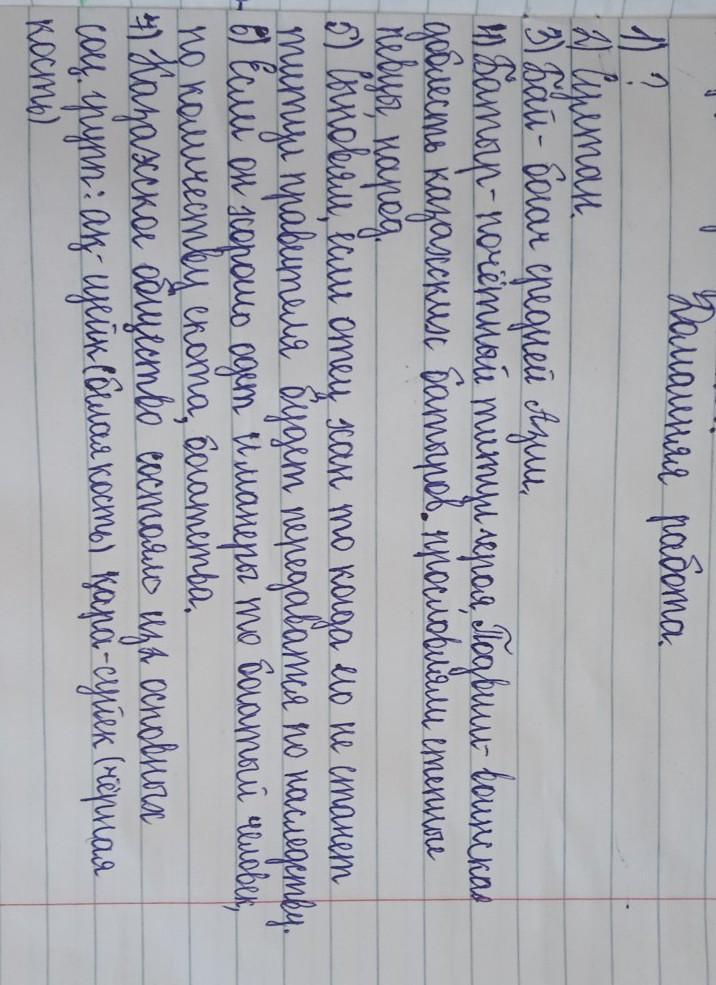 Домашняя работа.
1) ?
2) Султан.
3) Бай - богач средней Азии.
4) Батыр - почётный титул героя. Подвиги - воинская
доблесть казахских батыров. прославляли степные
певцы, народ.
5) Сыновьям, если отец хан то когда его не станет
титул правителя будет передаватся по наследству.
6) Если он хорошо одет и манеры то богатый человек,
по количеству скота, богатства.
7) Казахское общество состояло из 2 основных
соц. групп: ақ-сүйек (белая кость) қара-сүйек (чёрная
кость)